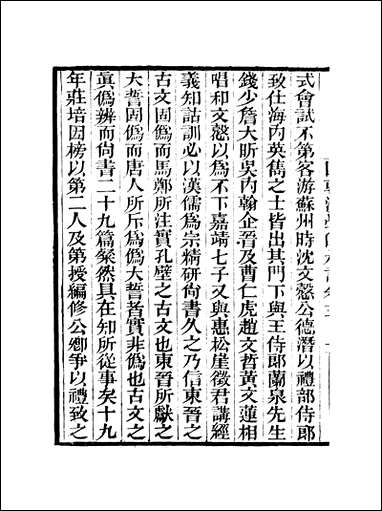 式會試不第客游蘇州時沈文慤公德潛以禮部侍郞
致仕海內英雋之士皆出其門下與王侍郞蘭泉先生
錢少詹大昕吳內翰企晉及曹仁虎趙文哲黃文蓮相
唱和文慤以爲不下嘉靖七子又與惠松崖徵君講經
義知詁訓必以漢儒爲宗精硏尙書久之乃信東晉之
古文固僞而馬鄭所注實孔壁之古文也東晉所獻之
大誓固僞而唐人所斥爲僞大誓者實非僞也古文之
眞僞辨而尙書二十九篇粲然具在知所從事矣十九
年莊培因榜以第二人及第授編修公卿爭以禮致之